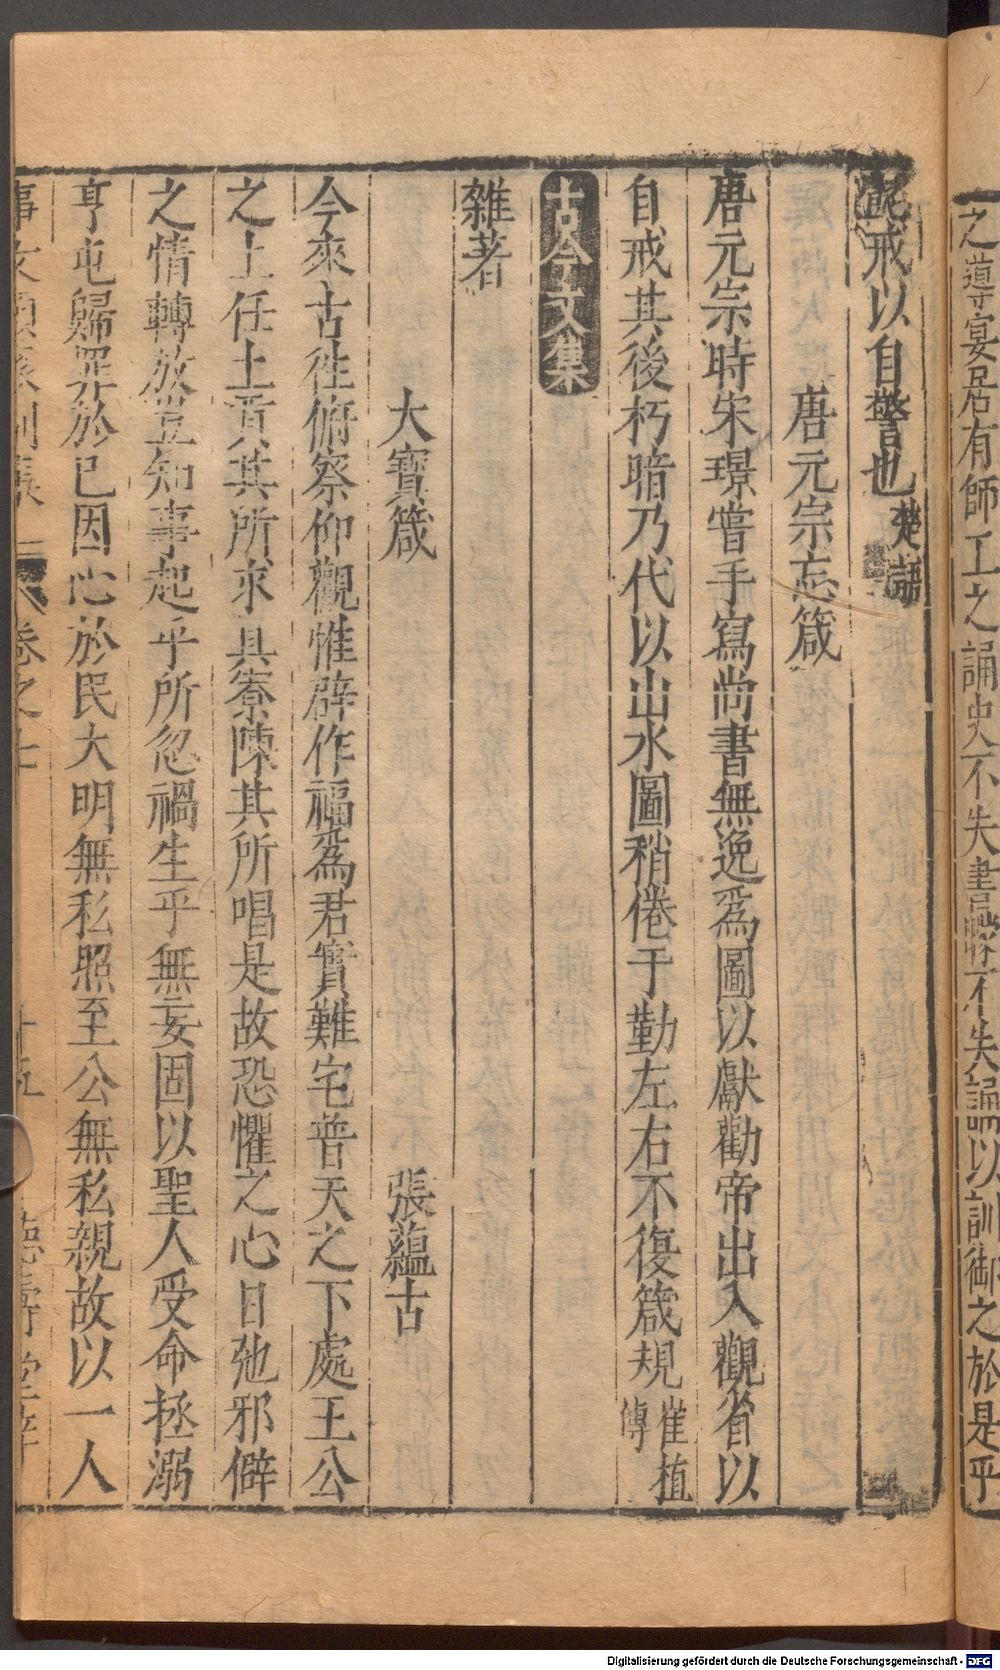 之導宴居有師工之誦史不失書矇不失誦以訓御之於是乎
懿戒以自警也楚語
唐元宗忘箴
唐元宗時宋璟嘗手寫尚書無逸爲圖以獻勸帝出入觀省以
自戒其後朽暗乃代以出水圖稍倦于勤左右不復箴規崔植傳
古今文集
雜著
大寶箴 張蘊古
今來古徃俯察仰觀惟辟作福爲君實難宅普天之下處王公
之上任土貢其所求具寮陳其所唱是故恐懼之心日弛邪僻
之情轉放豈知事起乎所忽禍生乎無妄固以聖人受命拯溺
亨屯歸罪於已因心於民大明無私照至公無私親故以一人
事文類聚別集 卷之七 十五 德壽堂梓
Digitalisierung gefördert durch die Deutsche Forschungsgemeinschaft - DFG